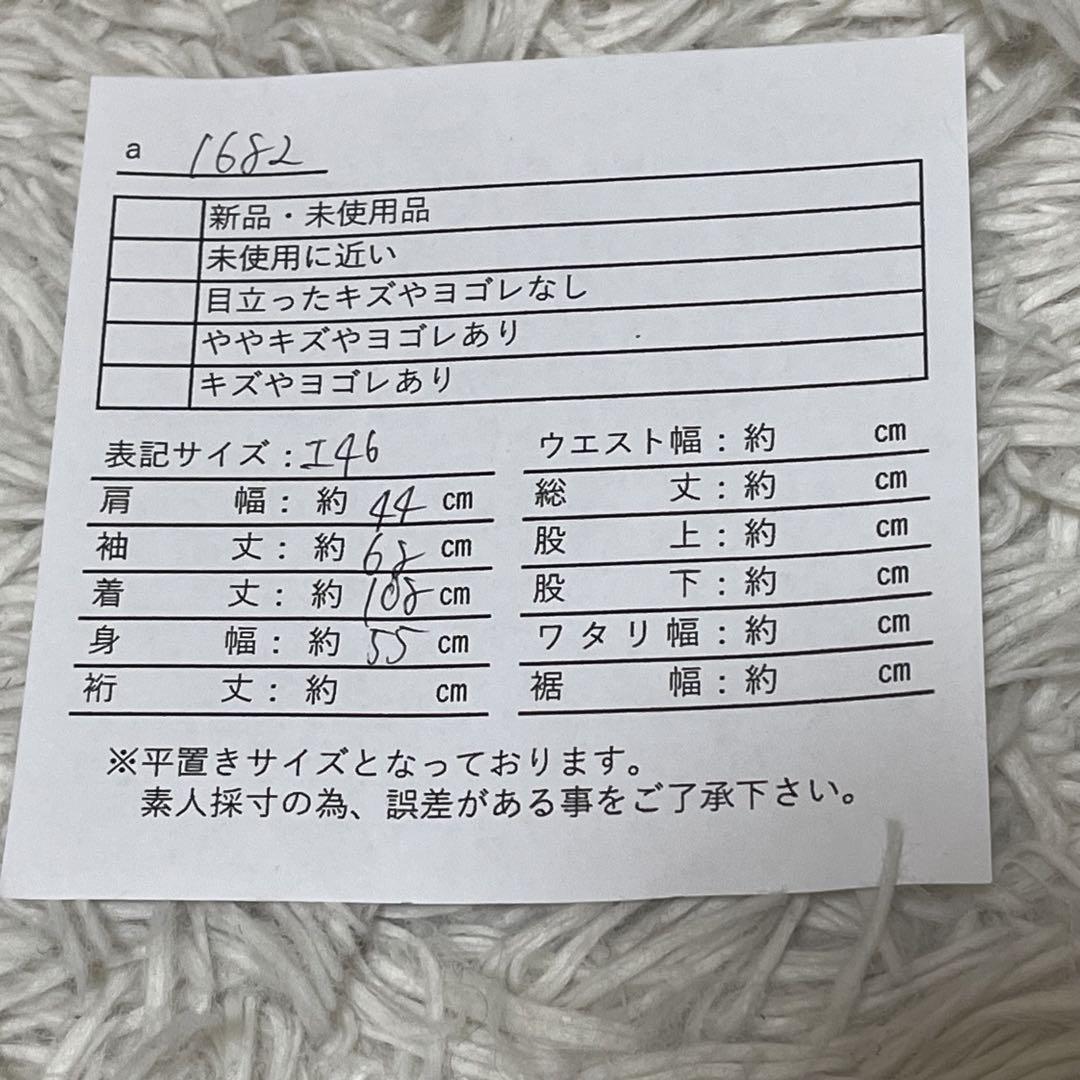 a 1682
新品・未使用品
未使用に近い
目立ったキズやヨゴレなし
ややキズやヨゴレあり
キズやヨゴレあり
表記サイズ：I46
肩幅：約 44 ㎝
袖丈：約 68 ㎝
着丈：約 108 ㎝
身幅：約 55 ㎝
裄丈：約 ㎝
ウエスト幅：約 ㎝
総丈：約 ㎝
股上：約 ㎝
股下：約 ㎝
ワタリ幅：約 ㎝
裾幅：約 ㎝
※平置きサイズとなっております。
素人採寸の為、誤差がある事をご了承下さい。